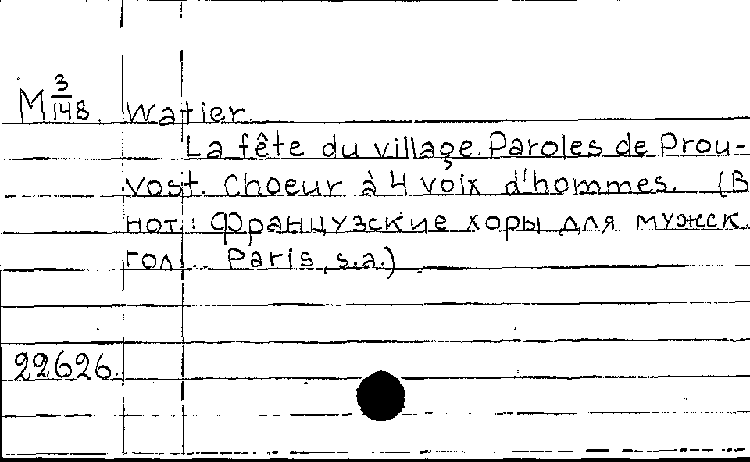 М 3/148. Watier.
La fête du village. Paroles de Prou-
vost. Choeur à 4 voix d'hommes. (В
нот.: Французские хоры для мужск.
гол. Paris, s.a.)
22626.